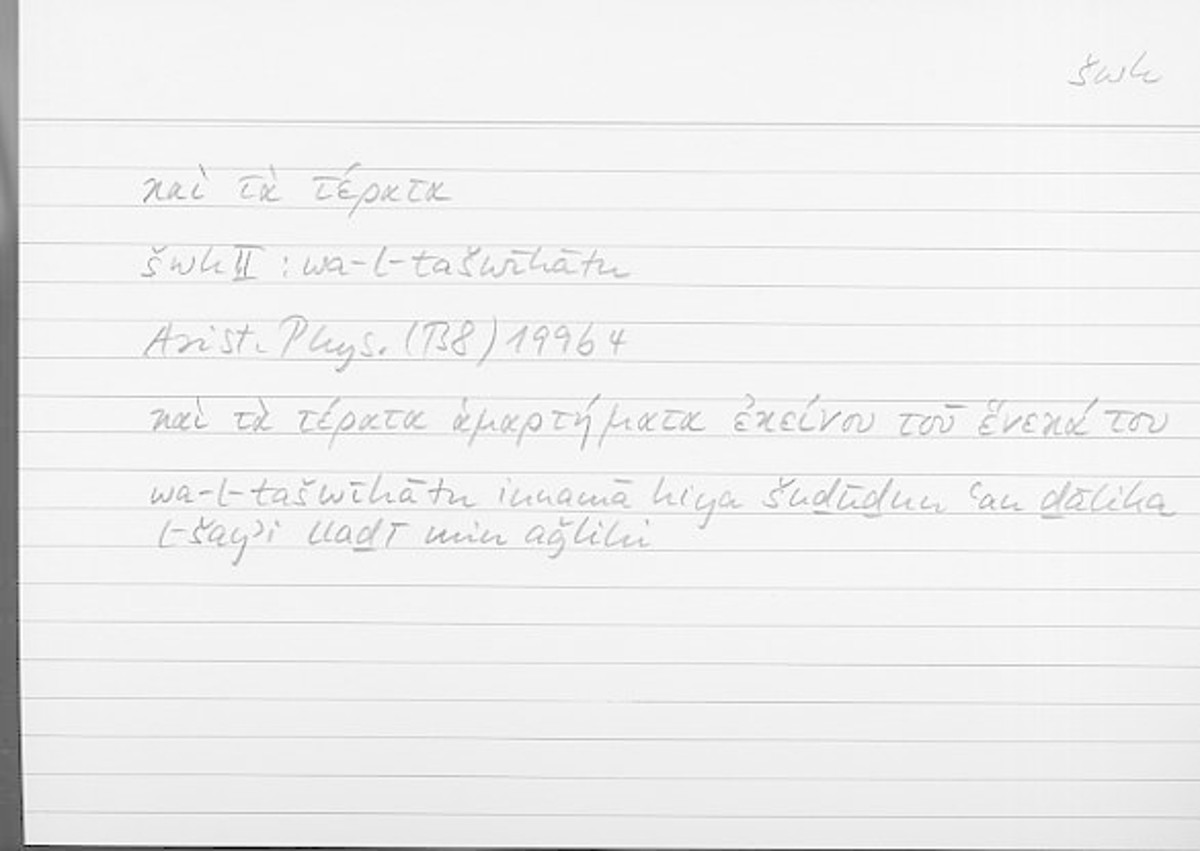 šwh
καὶ τὰ τέρατα
šwh II : wa-l-tašwīhātu
Arist. Phys. (B8) 199b4
καὶ τὰ τέρατα ἁμαρτήματα ἐκείνου τοῦ ἕνεκά του
wa-l-tašwīhātu innamā hiya šuḏūḏun ʿan ḏālika
l-šayʾi llaḏī min aǧlihi